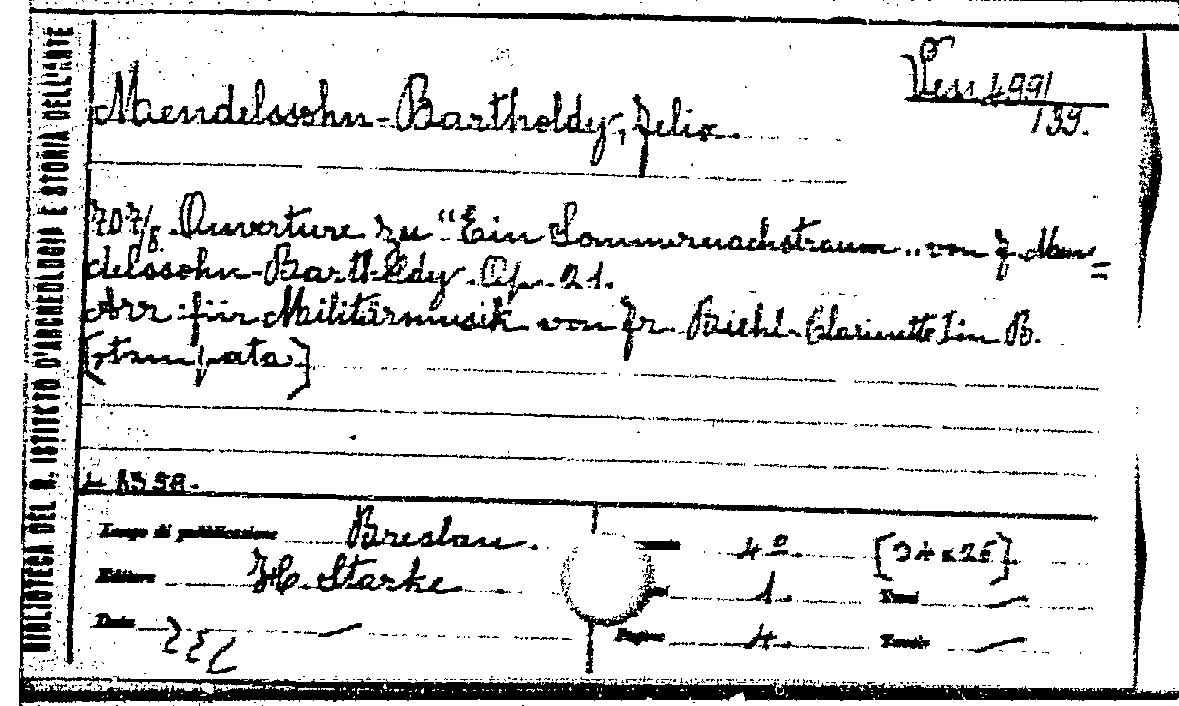 BIBLIOTECA DEL R. ISTITUTO D'ARCHEOLOGIA E STORIA DELL'ARTE
Vess 499/
139.
Mendelssohn-Bartholdy, Felix.
707/8. Ouverture zu "Ein Sommernachstraum„ von F. Men=
delssohn-Bartholdy. Op. 21.
Arr. für Militärmusik von Fr. Biehl. Clarinette I in B.
[stampata]
Luogo di pubblicazione Breslau. 4º. [34x26]
Editore H. Starke 1. Tomi —
Data — Pagine 4. Tavole —